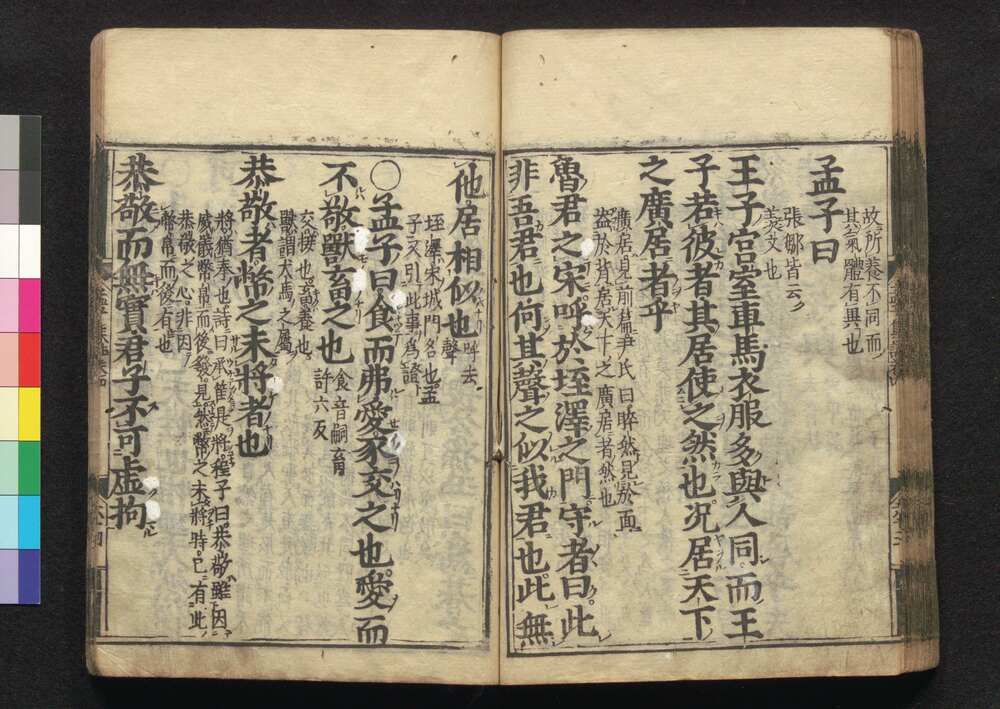 故所養不同而
其氣體有異也
孟子曰
張鄒皆云
羨文也
王子宮室車馬衣服多與人同而王
子若彼者其居使之然也況居天下
之廣居者乎
廣居見前篇尹氏曰睟然見於面
盎於背居天下之廣居者然也
魯君之宋呼於垤澤之門守者曰此
非吾君也何其聲之似我君也此無
他居相似也
呼去
聲
垤澤宋城門名也孟
子又引此事爲證
○孟子曰食而弗愛豕交之也愛而
不敬獸畜之也
食音嗣畜
許六反
交接也畜養也
獸謂犬馬之屬
恭敬者幣之未將者也
將猶奉也詩曰承筐是將程子曰恭敬雖因
威儀幣帛而後發見然幣之未將時已有此
恭敬之心非因
幣帛而後有也
恭敬而無實君子不可虛拘